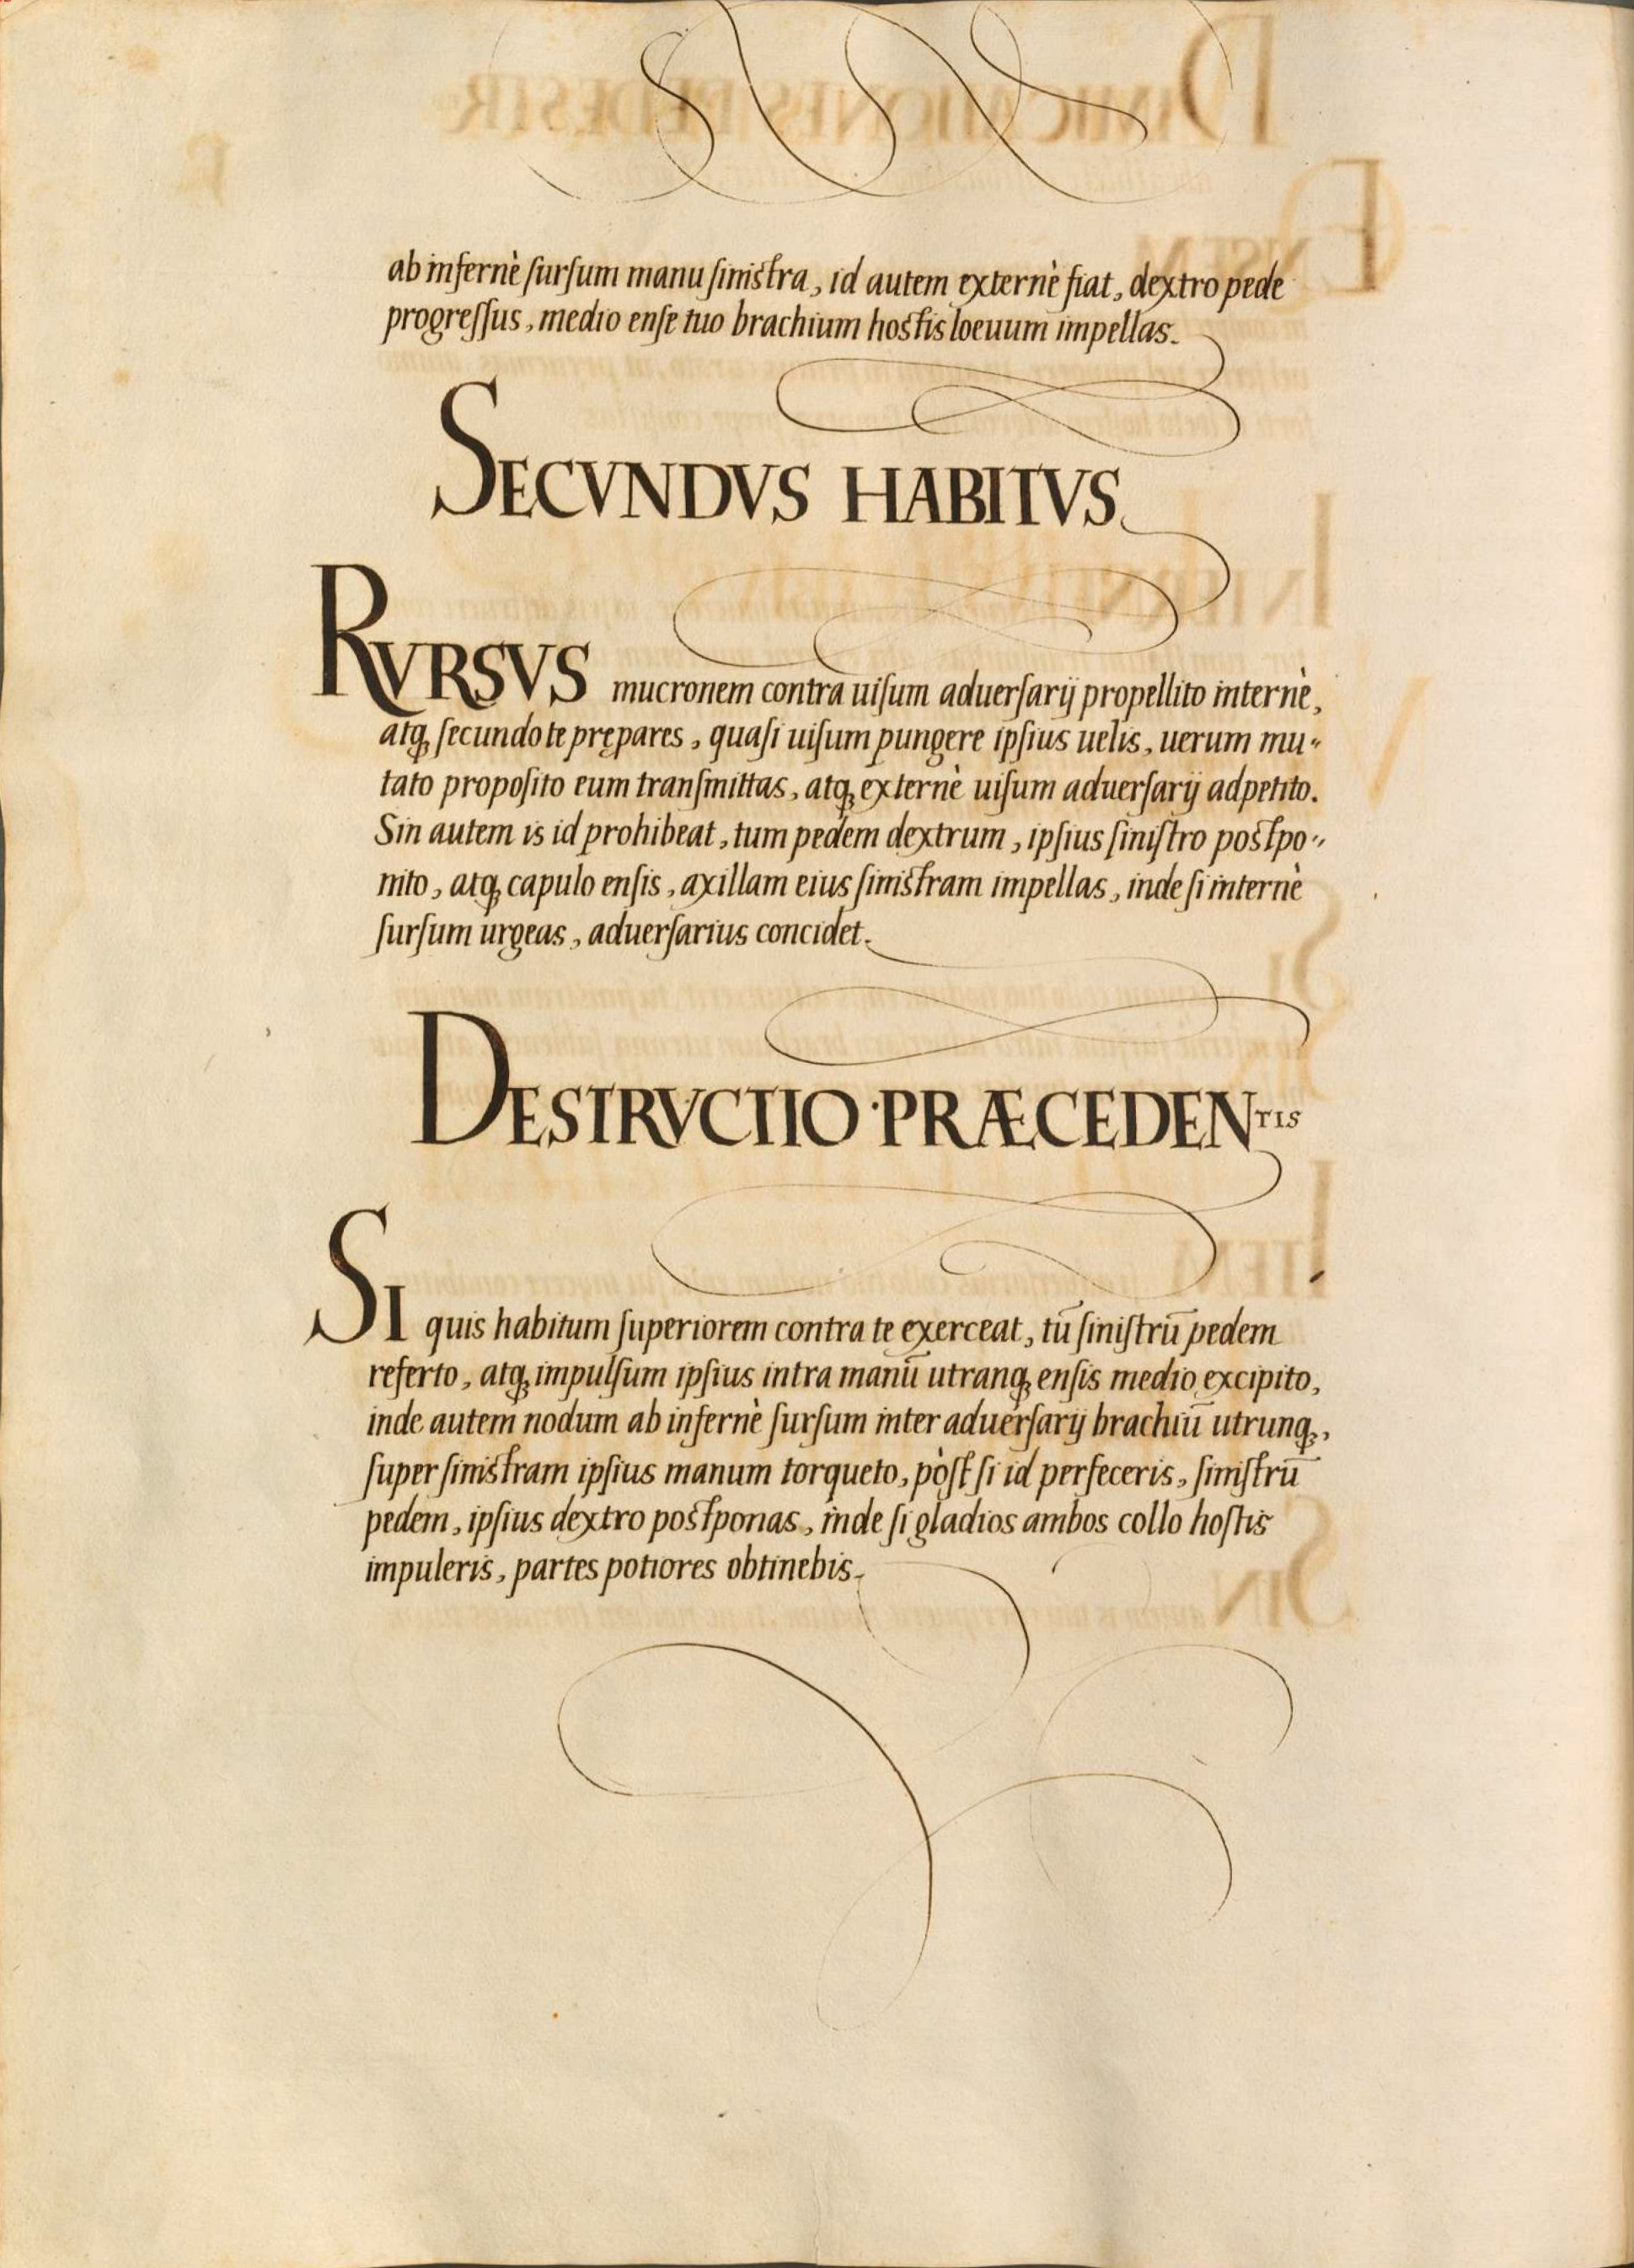 ab infernè surſum manu siniſtra, id autem externè fiat, dextro pede
progreſſus, medio enſe tuo brachium hoſtis loeuum impellas.
SECVNDVS HABITVS
RVRSVS mucronem contra uiſum aduerſarij propellito internè,
atq; ſecundo te prępares, quaſi uiſum pungere ipſius uelis, uerum mu-
tato propoſito eum tranſmittas, atq; externè uiſum aduerſarij adpetito.
Sin autem is id prohibeat, tum pedem dextrum, ipſius ſiniſtro poſtpo-
nito, atq; capulo enſis, axillam eius ſiniſtram impellas, inde ſi internè
ſurſum urgeas, aduerſarius concidet.
DESTRVCTIO·PRÆCEDENTIS
SI quis habitum ſuperiorem contra te exerceat, tū ſiniſtrū pedem
referto, atq; impulſum ipſius intra manū utranq; enſis medio excipito,
inde autem nodum ab infernè ſurſum inter aduerſarij brachiū utrunq;,
ſuper ſiniſtram ipſius manum torqueto, pòſt ſi id perfeceris, ſiniſtrū
pedem, ipſius dextro poſtponas, inde ſi gladios ambos collo hoſtis
impuleris, partes potiores obtinebis.